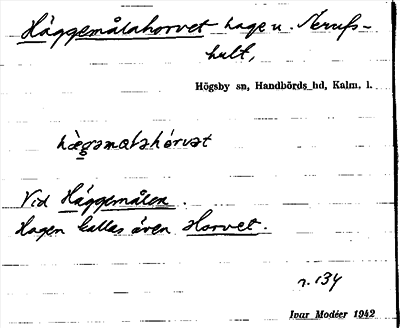 Häggemålahorvet hage u. Neruds-
hult,
Högsby sn, Handbörds hd, Kalm. l.
hæ̀gəmalahórvət
Vid Häggemålen.
Hagen kallas även Horvet.
r. 134
Ivar Modéer 1942